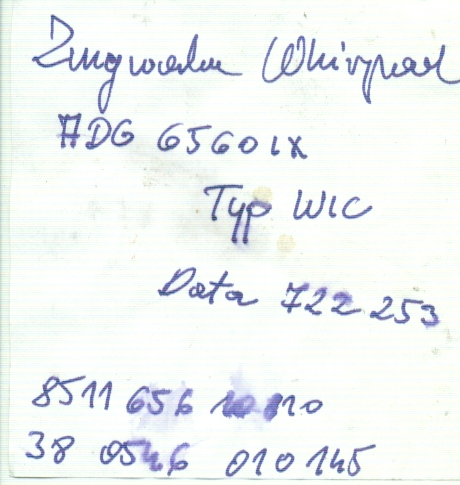 Zmywarka Whirpool
ADG 6560 IX
Typ WIC
Data 722 253
8511 656 10 110
38 0546 010 145